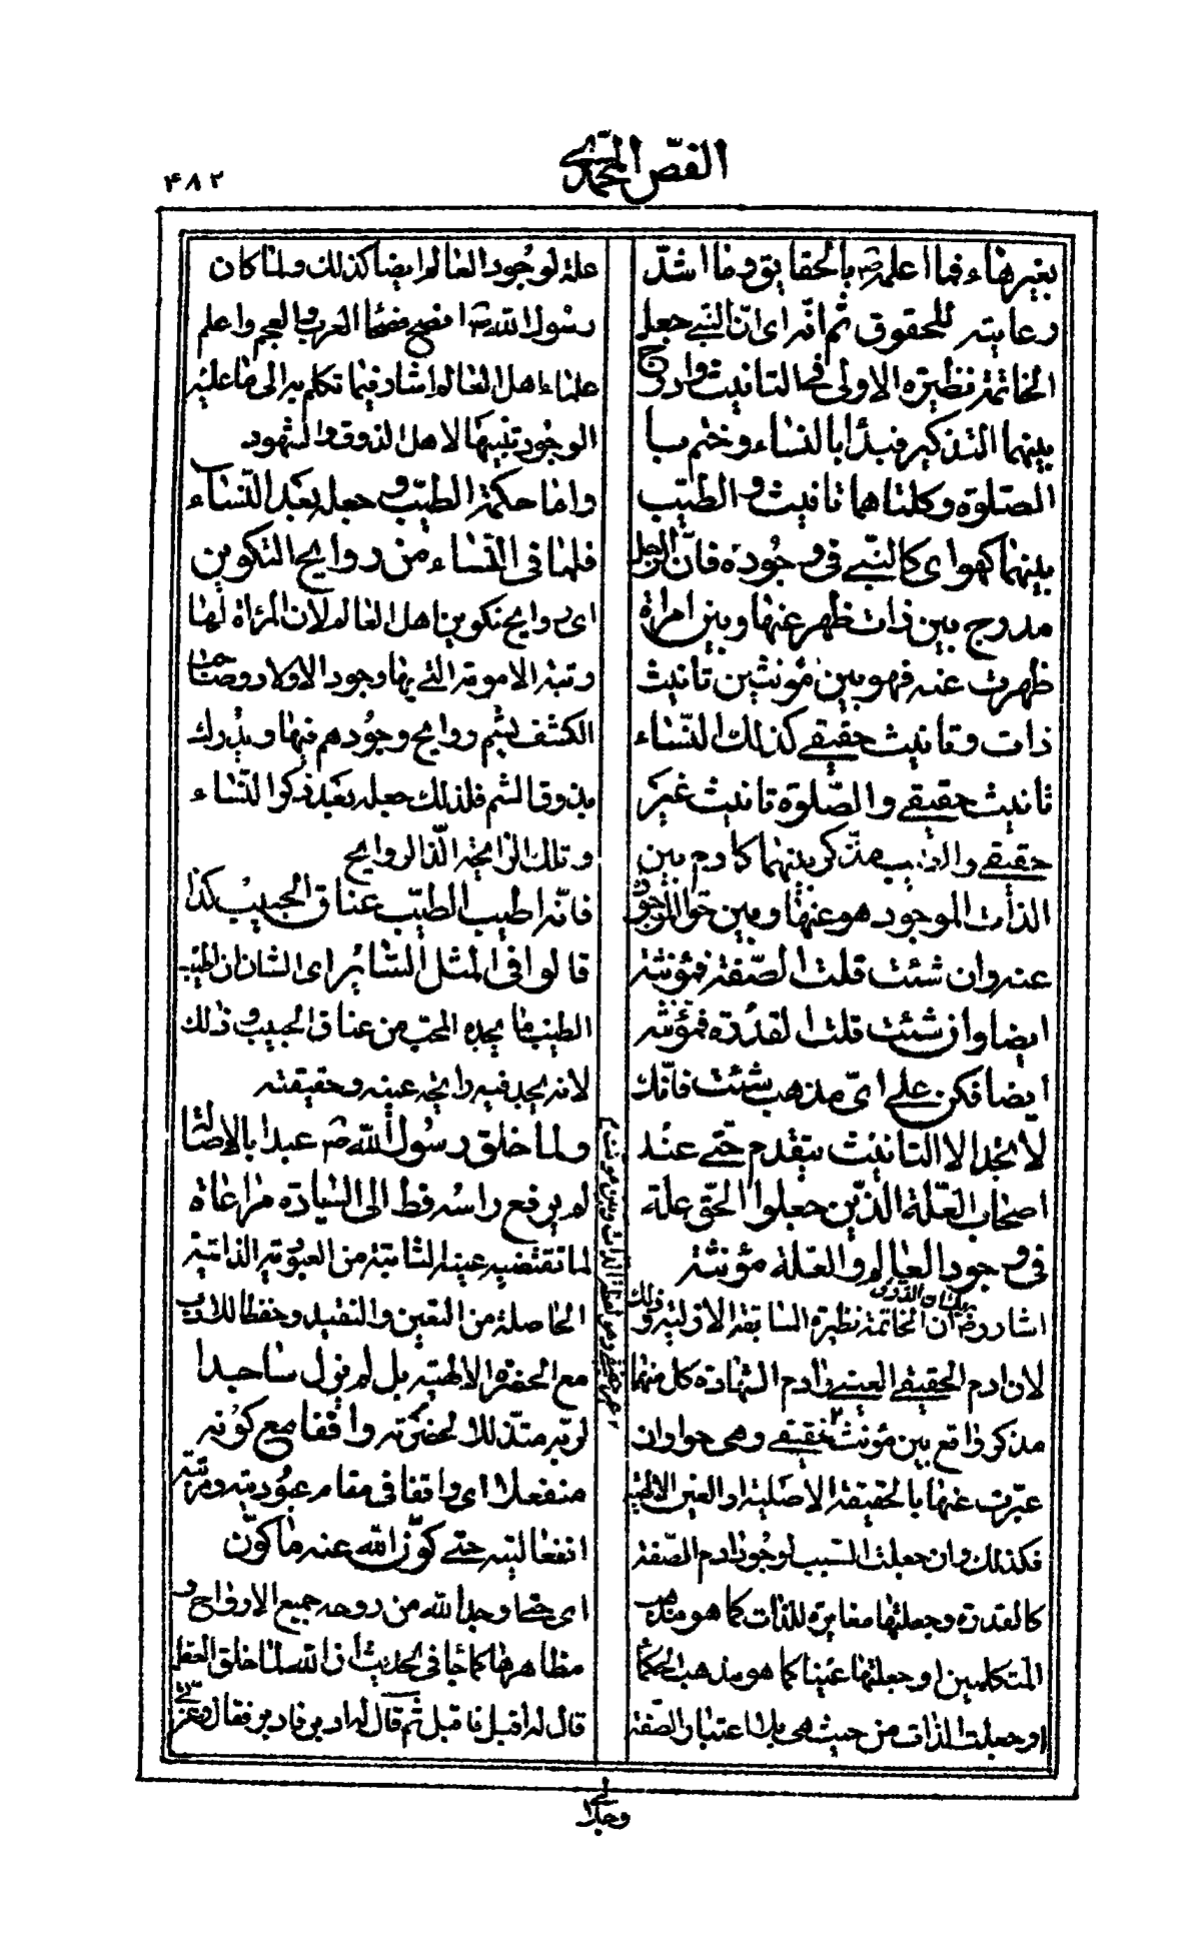 الفصّ المحمّدي
۴۸۲
بغيرهاء فما اعلمه ص بالحقايق وما اشدّ
رعايته للحقوق ثم انّه اى انّ النّبي جعل
الخاتمة نظيرة الاولى فى التانيث وادرج
بينهما التذكير فبدأ بالنساء وختم با
الصّلوة وكلتاهما تانيث والطيّب
بينهما كهواى كالنّبي فى وجوده فانّ الرجل
مدرج بين ذات ظهر عنها وبين امراة
ظهرت عنه فهو بين مؤنثين تانيث
ذات وتانيث حقيقي كذلك النّساء
تانيث حقيقي والصّلوة تانيث غير
حقيقي والطيب مذكر بينهما كادم بين
الذات الموجود هو عنها وبين حوا الموجود
عنه وان شئت قلت الصّفة فمؤنثة
ايضا وان شئت قلت القدرة فمؤنثه
ايضا فكن علي اىّ مذهب شئت فانّك
لا تجد الا التانيث يتقدم حتي عند
اصحاب العّلة الذّين جعلوا الحّق علة
فى وجود العالم والعلة مؤنثة
اشار رض ان الخاتمة نظيرة السابقة الازلية وذلك
لان ادم الحقيقي العيني وادم الشهادة كل منهما
مذكر واقع بين مؤنث حقيقي وهى حوا وان
عبّرت عنها بالحقيقة الاصلية او العين الالهية
فكذلك وان جعلت السبب لوجود ادم الصّفة
كالقدرة وجعلتها مغايرة للذات كما هو مذهب
المتكلمين او جعلتها عينا كما هو مذهب الحكما
او جعلت الذات من حيث هى بلا اعتبار الصّفة
علة لوجود العالم ايضا كذلك ولما كان
رسول الله ص افصح فصحا العرب والعجم واعلم
علماء اهل العالم اشار فيما تكلم به الى ما عليه
الوجود تنبيها لاهل الذوق والشهود
واما حكمة الطيّب وجعله بعد النّساء
فلما فى النّساء من روايح التكوين
اى روايح تكوين اهل العالم لان المرأة لها
رتبة الامومة التي بها وجود الاولاد وصاحب
الكشف يشم روايح وجودهم فيها ويدرك
بذوق الشم فلذلك جعله بعد ذكر النّساء
وتلك الرايحة الذّ الروايح
فانّه اطيب الطيّب عناق الحبيب كذا
قالوا فى المثل السّائر اى الشان ان اطيب
الطيب ما يجده المحب من عناق الحبيب وذلك
لانه يجد فيه رايحة عينه وحقيقته
ولما خلق رسول الله ص عبدا بالاصالة
لم يرفع راسه قط الى السّيادة مراعاة
لما تقتضيه عينه الثابتة من العبوّدية الذاتية
الحاصلة من التعين والتقييد وحفظا للادب
مع الحضرة الالهية بل لم يزل ساجدا
لربّه متذللا لحضرته واقفا مع كونه
منفعلا اى واقفا فى مقام عبوديته ومرتبة
انفعاليته حتي كوّن الله عنه ما كوّن
اى حتى اوجد الله من روحه جميع الارواح و
مظاهرها كما جا فى الحديث ان الله لما خلق العقل
قال له اقبل فاقبل ثم قال له ادبر فادبر فقال وعزتى
وجلالي